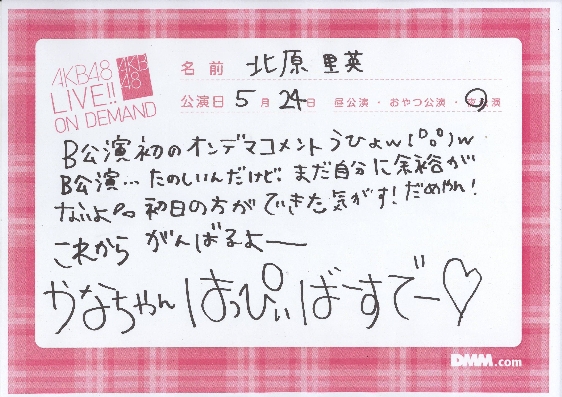 AKB48
LIVE!!
ON DEMAND
AKB
48
名前 北原里英
公演日 5月24日 昼公演・おやつ公演・夜公演
B公演初のオンデマコメントうひょw(°o°)w
B公演…たのしいんだけど、まだ自分に余裕が
ないよ 初日の方ができた気がす!だめやん!
これから がんばるよー
かなちゃん はっぴぃばーすでー♡
DMM.com